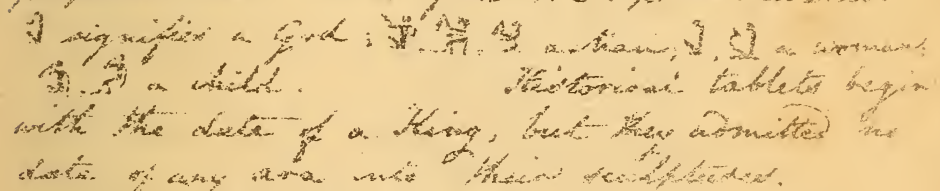 signifies a God ; a man ; a woman
a child . Historical tablets begin
with the date of a King, but they admitted no
date of any æra into their sculptures.